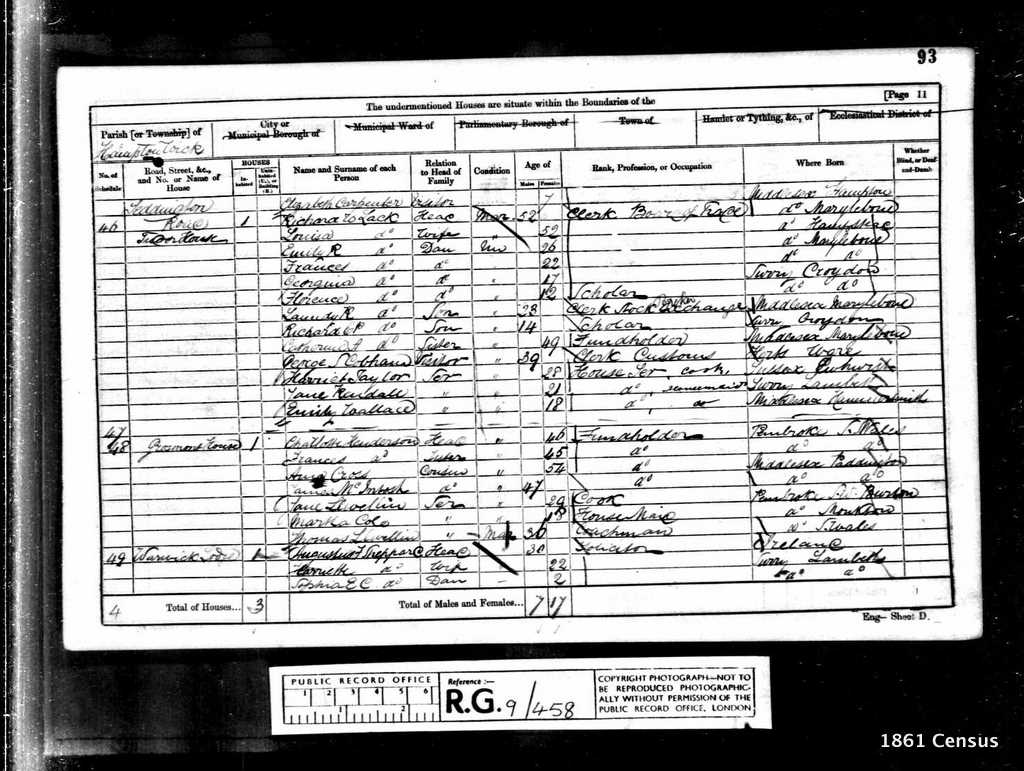 93
[Page 11
The undermentioned Houses are situate within the Boundaries of the
Parish [or Township] of
City or Municipal Borough of
Municipal Ward of
Parliamentary Borough of
Town of
Hamlet or Tything, &c., of
Ecclesiastical District of
Hampton Wick
No. of Schedule
Road, Street, &c., and No. or Name of House
HOUSES
Inhabited
Uninhabited (U.), or Building (B.)
Name and Surname of each Person
Relation to Head of Family
Condition
Age of
Males
Females
Rank, Profession, or Occupation
Where Born
Whether Blind, or Deaf-and-Dumb
Teddington Elizabeth Carpenter Visitor 7 Middlesex Hampton
46 1 Richard Lack Head Mar 52 Clerk Board of Trade do Marylebone
Tudor House Louisa do Wife 52 do
Emily R do Dau Un 26 do Marylebone
Frances do do 22 do do
Georgina do do " 17 Surrey Croydon
Florence do do " 12 Scholar do do
R do Son " 23 Clerk Stock Exchange Middlesex Marylebone
Richard do Son " 14 Scholar Surry Croydon
Catherine A do Sister " 49 Fundholder Middlesex Marylebone
George Cobham Visitor " 39 Clerk Customs Herts Ware
Harriet Taylor Ser " 28 House Ser cook Sussex
Jane Kendall " " 21 do Surry Lambeth
Emily Wallace " " 18 do Middlesex Hammersmith
47
48 Grosmont House 1 Charlotte Henderson Head " 46 Fundholder Pembroke S. Wales
Frances do Sister " 45 do do do
Anna Cross Cousin " 54 do Middlesex Paddington
James McIntosh do " 47 do do do
Jane Llewellin Ser " 29 Cook Pembroke
Martha Cole " " 18 House Maid do Monkton
Thomas Llewellin " Mar 36 Coachman do S. Wales
49 Warwick Lodge 1 Augustus F Sheppard Head 30 Solicitor Ireland
Harriette do Wife 22 Surry Lambeth
Sophia E C do Dau 2 do do
4 Total of Houses... 3 Total of Males and Females... 7 17
Eng— Sheet D.
PUBLIC RECORD OFFICE
1 2 3 4 5 6
1 2
Reference :—
R.G. 9/458
COPYRIGHT PHOTOGRAPH—NOT TO
BE REPRODUCED PHOTOGRAPHIC-
ALLY WITHOUT PERMISSION OF THE
PUBLIC RECORD OFFICE, LONDON
1861 Census